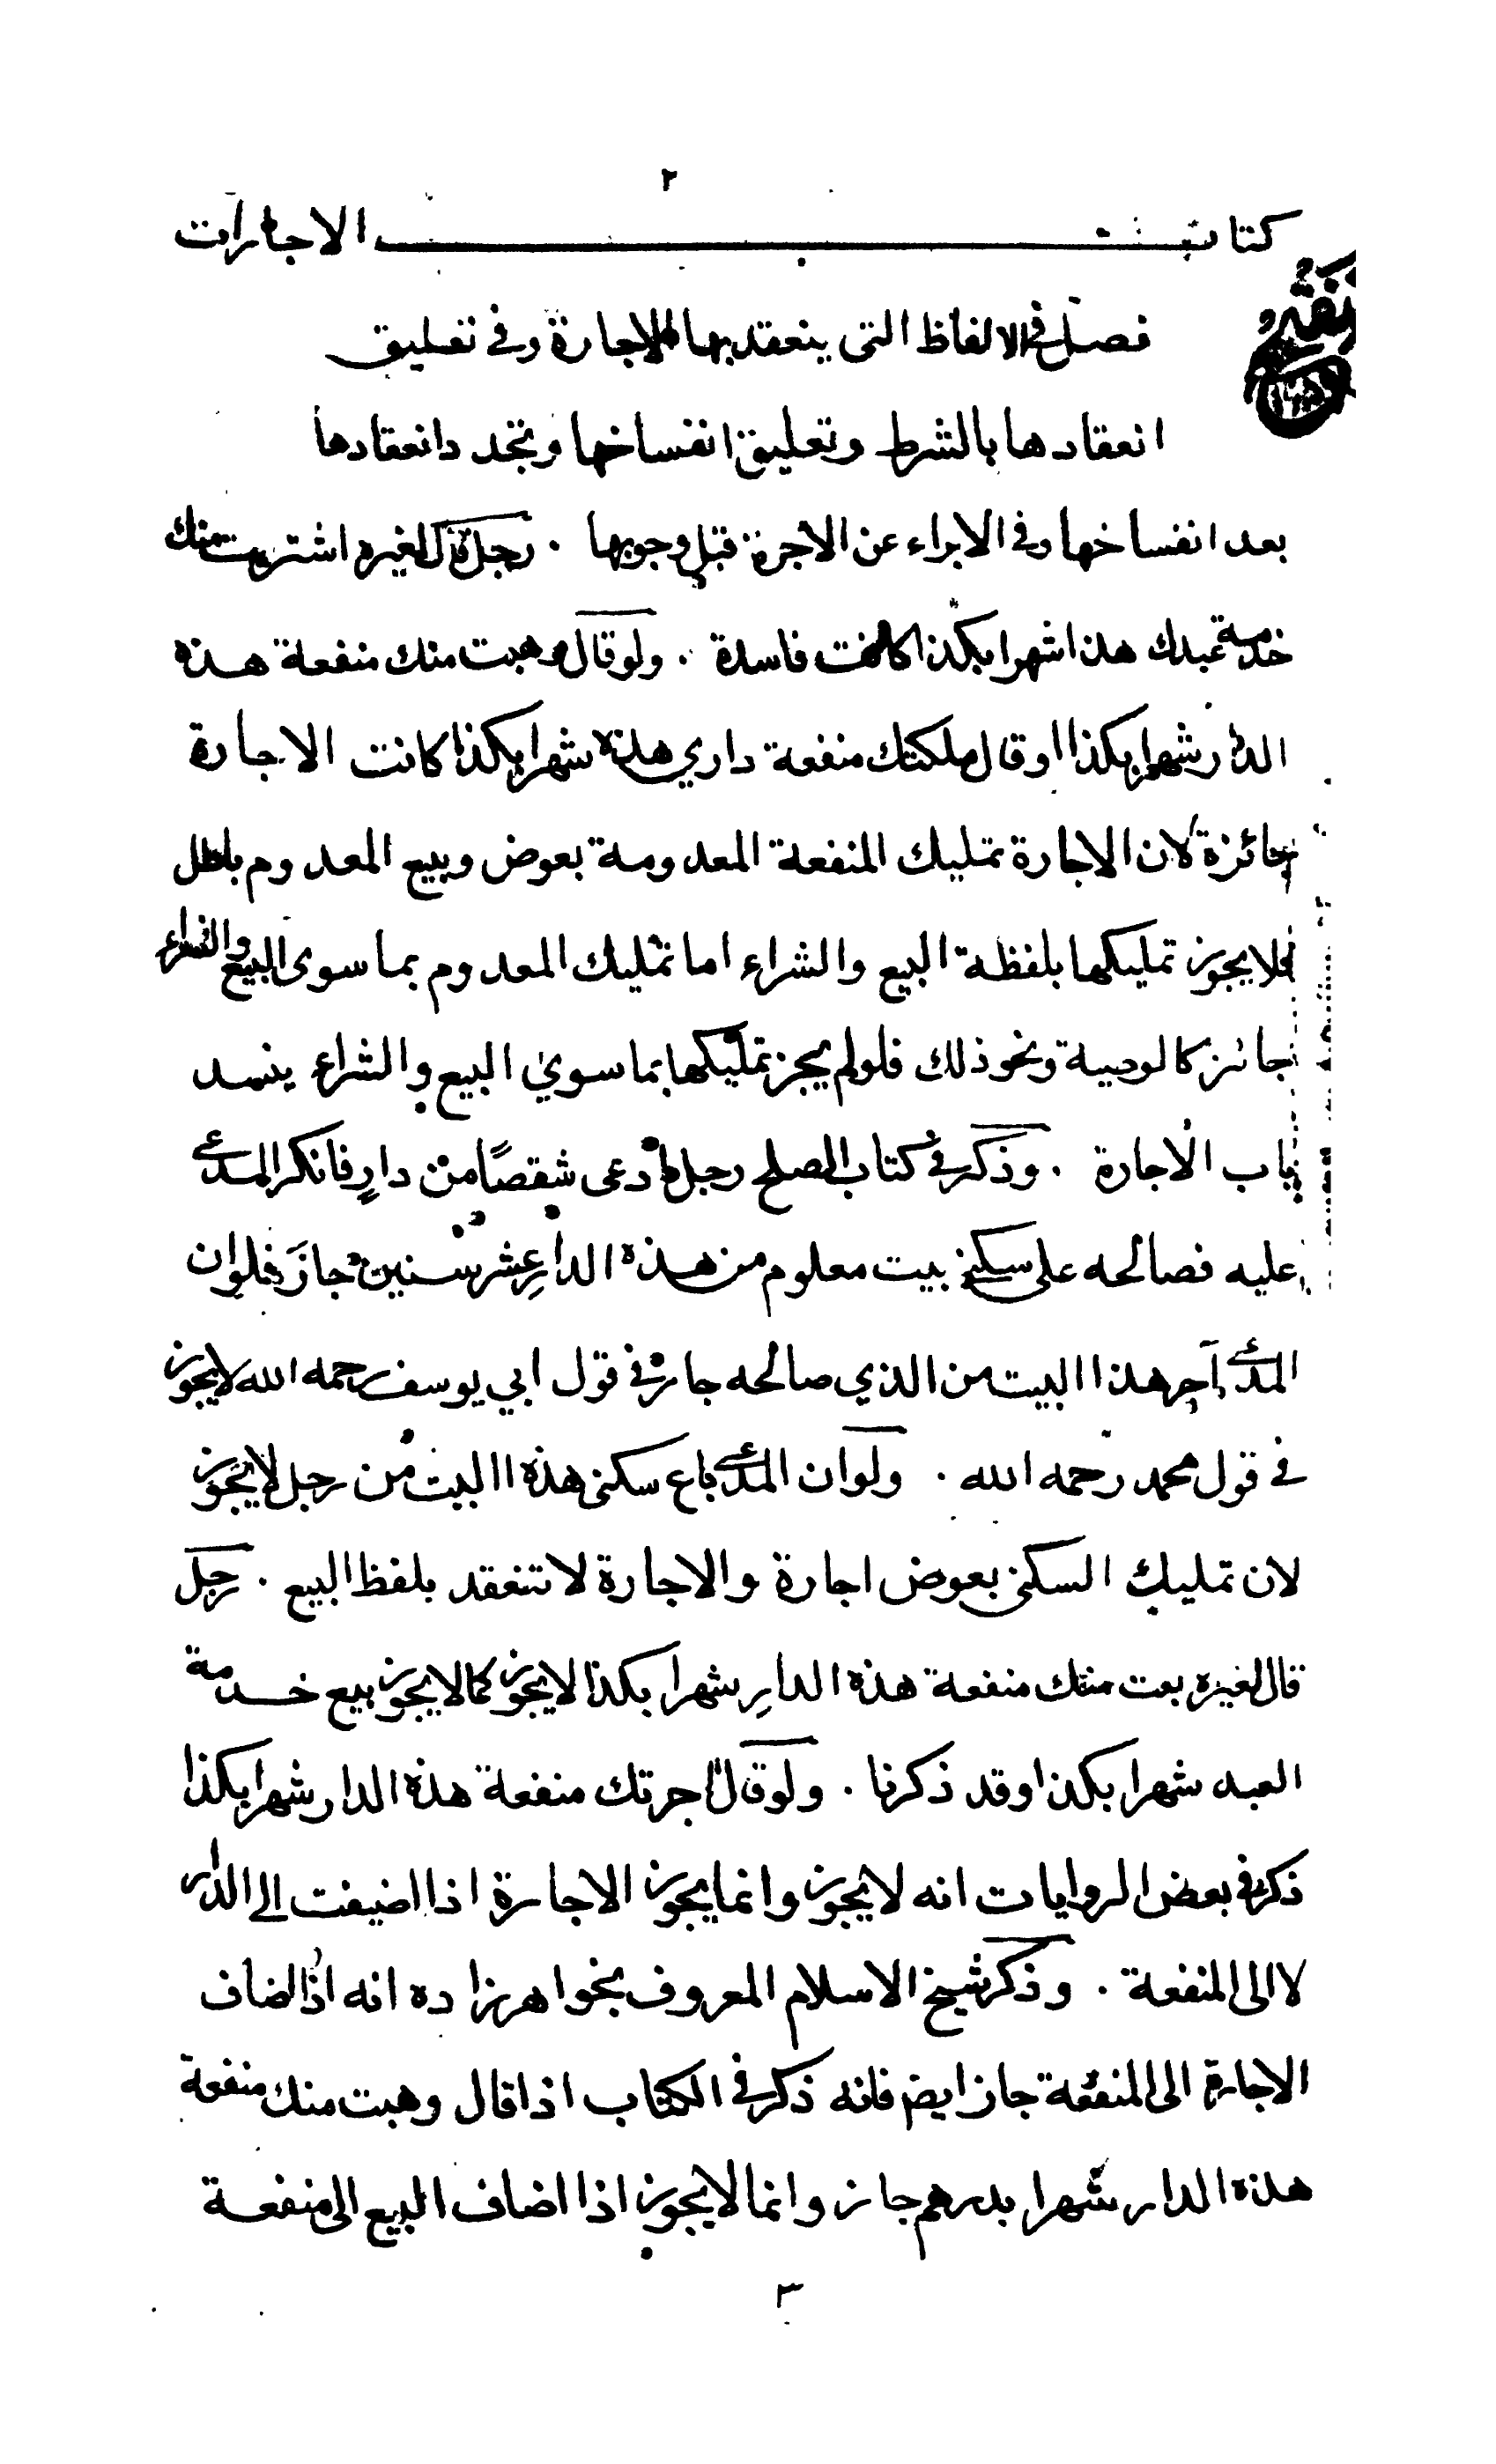 ٢
كتاب الاجارات
فصل في الالفاظ التي ينعقد بها الاجارة وفي تعليق
انعقادها بالشرط وتعليق انفساخها وتجدد انعقادها
بعد انفساخها وفي الابراء عن الاجرة قبل وجوبها . رجل قال لغيره اشتريت منك
خدمة عبدك هذا شهرا بكذا كانت فاسدة . ولو قال وهبت منك منفعة هذه
الدار شهرا بكذا او قال ملكتك منفعة داري هذه شهرا بكذا كانت الاجارة
جائزة لان الاجارة تمليك المنفعة المعدومة بعوض وبيع المعدوم باطل
فلا يجوز تمليكها بلفظة البيع والشراء اما تمليك المعدوم بما سوى البيع والشراء
جائز كالوصية ونحو ذلك فلو لم يجز تمليكها بما سوي البيع والشراء ينسد
باب الاجارة . وذكر في كتاب الصلح رجل ادعى شقصًا من دارٍ فانكر المدعى
عليه فصالحه على سكنى بيت معلوم من هذه الدارِ عشر سنين جازَ فلو ان
المدعي آجر هذا البيت من الذي صالحه جاز في قول ابي يوسف رحمه الله لا يجوز
في قول محمد رحمه الله . ولو ان المدعي باع سكنى هذه البيت من رجل لا يجوز
لان تمليك السكنى بعوض اجارة والاجارة لا تنعقد بلفظ البيع . رجل
قال لغيره بعت منك منفعة هذه الدارِ شهرا بكذا لا يجوز كما لا يجوز بيع خدمة
العبد شهرا بكذا وقد ذكرنا . ولو قال اجرتك منفعة هذه الدار شهرا بكذا
ذكر في بعض الروايات انه لا يجوز وانما يجوز الاجارة اذا اضيفت الى الدار
لا الى المنفعة . وذكر شيخ الاسلام المعروف بخواهر زاده انه اذا اضاف
الاجارة الى المنفعة جاز ايضا فانه ذكر في الكتاب اذا قال وهبت منك منفعة
هذه الدار شهرا بدرهم جاز وانما لا يجوز اذا اضاف البيع الى منفعة
٣